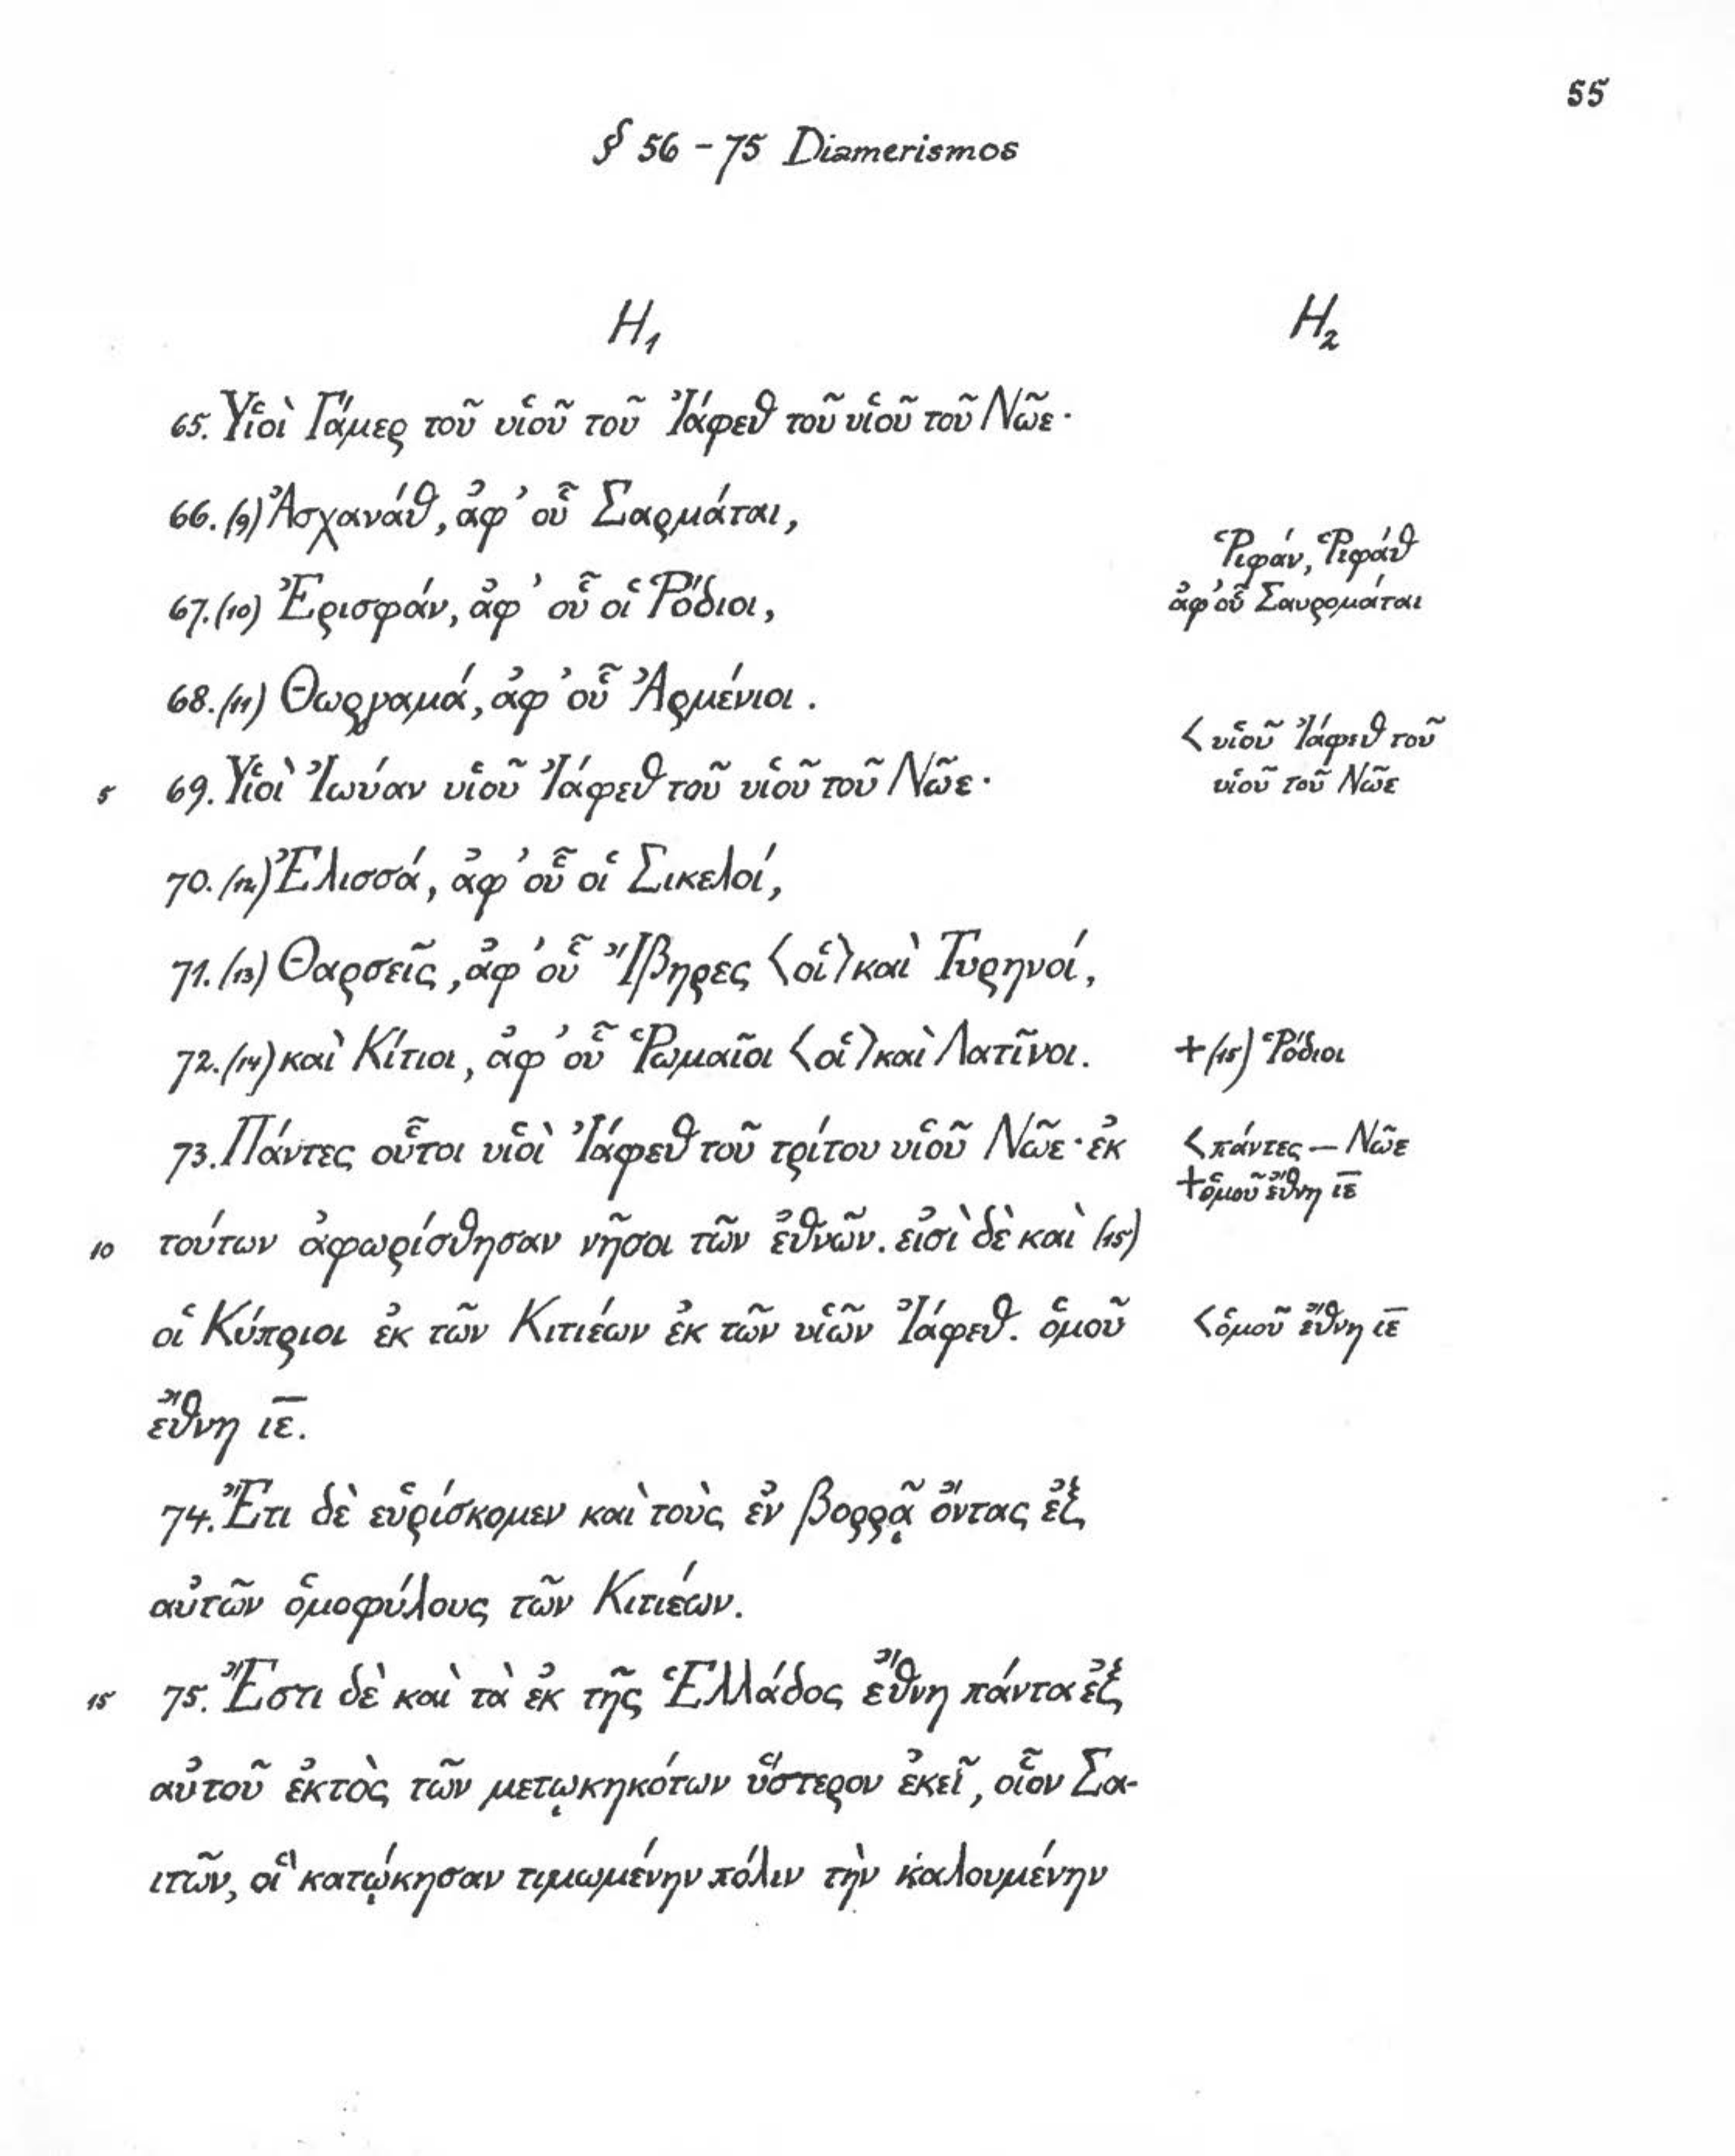 55
§ 56 - 75 Diamerismos
H₁
H₂
65. Υἱοὶ Γάμερ τοῦ υἱοῦ τοῦ Ἰάφεθ τοῦ υἱοῦ τοῦ Νῶε·
66. (9) Ἀσχανάθ, ἀφ' οὗ Σαρμάται,
Ῥιφάν, Ῥιφάθ
67. (10) Ἐρισφάν, ἀφ' οὗ οἱ Ῥόδιοι,
ἀφ' οὗ Σαυρομάται
68. (11) Θωργαμά, ἀφ' οὗ Ἀρμένιοι.
< υἱοῦ Ἰάφεθ τοῦ
5 69. Υἱοὶ Ἰωύαν υἱοῦ Ἰάφεθ τοῦ υἱοῦ τοῦ Νῶε·
υἱοῦ τοῦ Νῶε
70. (12) Ἐλισσά, ἀφ' οὗ οἱ Σικελοί,
71. (13) Θαρσεῖς, ἀφ' οὗ Ἴβηρες <οἱ> καὶ Τυρηνοί,
72. (14) καὶ Κίτιοι, ἀφ' οὗ Ῥωμαῖοι <οἱ> καὶ Λατῖνοι.
+ (15) Ῥόδιοι
73. Πάντες οὗτοι υἱοὶ Ἰάφεθ τοῦ τρίτου υἱοῦ Νῶε· ἐκ
< πάντες — Νῶε
+ ὁμοῦ ἔθνη ι̅ε̅
10 τούτων ἀφωρίσθησαν νῆσοι τῶν ἐθνῶν. εἰσὶ δὲ καὶ (15)
οἱ Κύπριοι ἐκ τῶν Κιτιέων ἐκ τῶν υἱῶν Ἰάφεθ. ὁμοῦ
< ὁμοῦ ἔθνη ι̅ε̅
ἔθνη ι̅ε̅.
74. Ἔτι δὲ εὑρίσκομεν καὶ τοὺς ἐν βορρᾷ ὄντας ἐξ
αὐτῶν ὁμοφύλους τῶν Κιτιέων.
15 75. Ἔστι δὲ καὶ τὰ ἐκ τῆς Ἑλλάδος ἔθνη πάντα ἐξ
αὐτοῦ ἐκτὸς τῶν μετῳκηκότων ὕστερον ἐκεῖ, οἷον Σα-
ιτῶν, οἳ κατῴκησαν τιμωμένην πόλιν τὴν καλουμένην